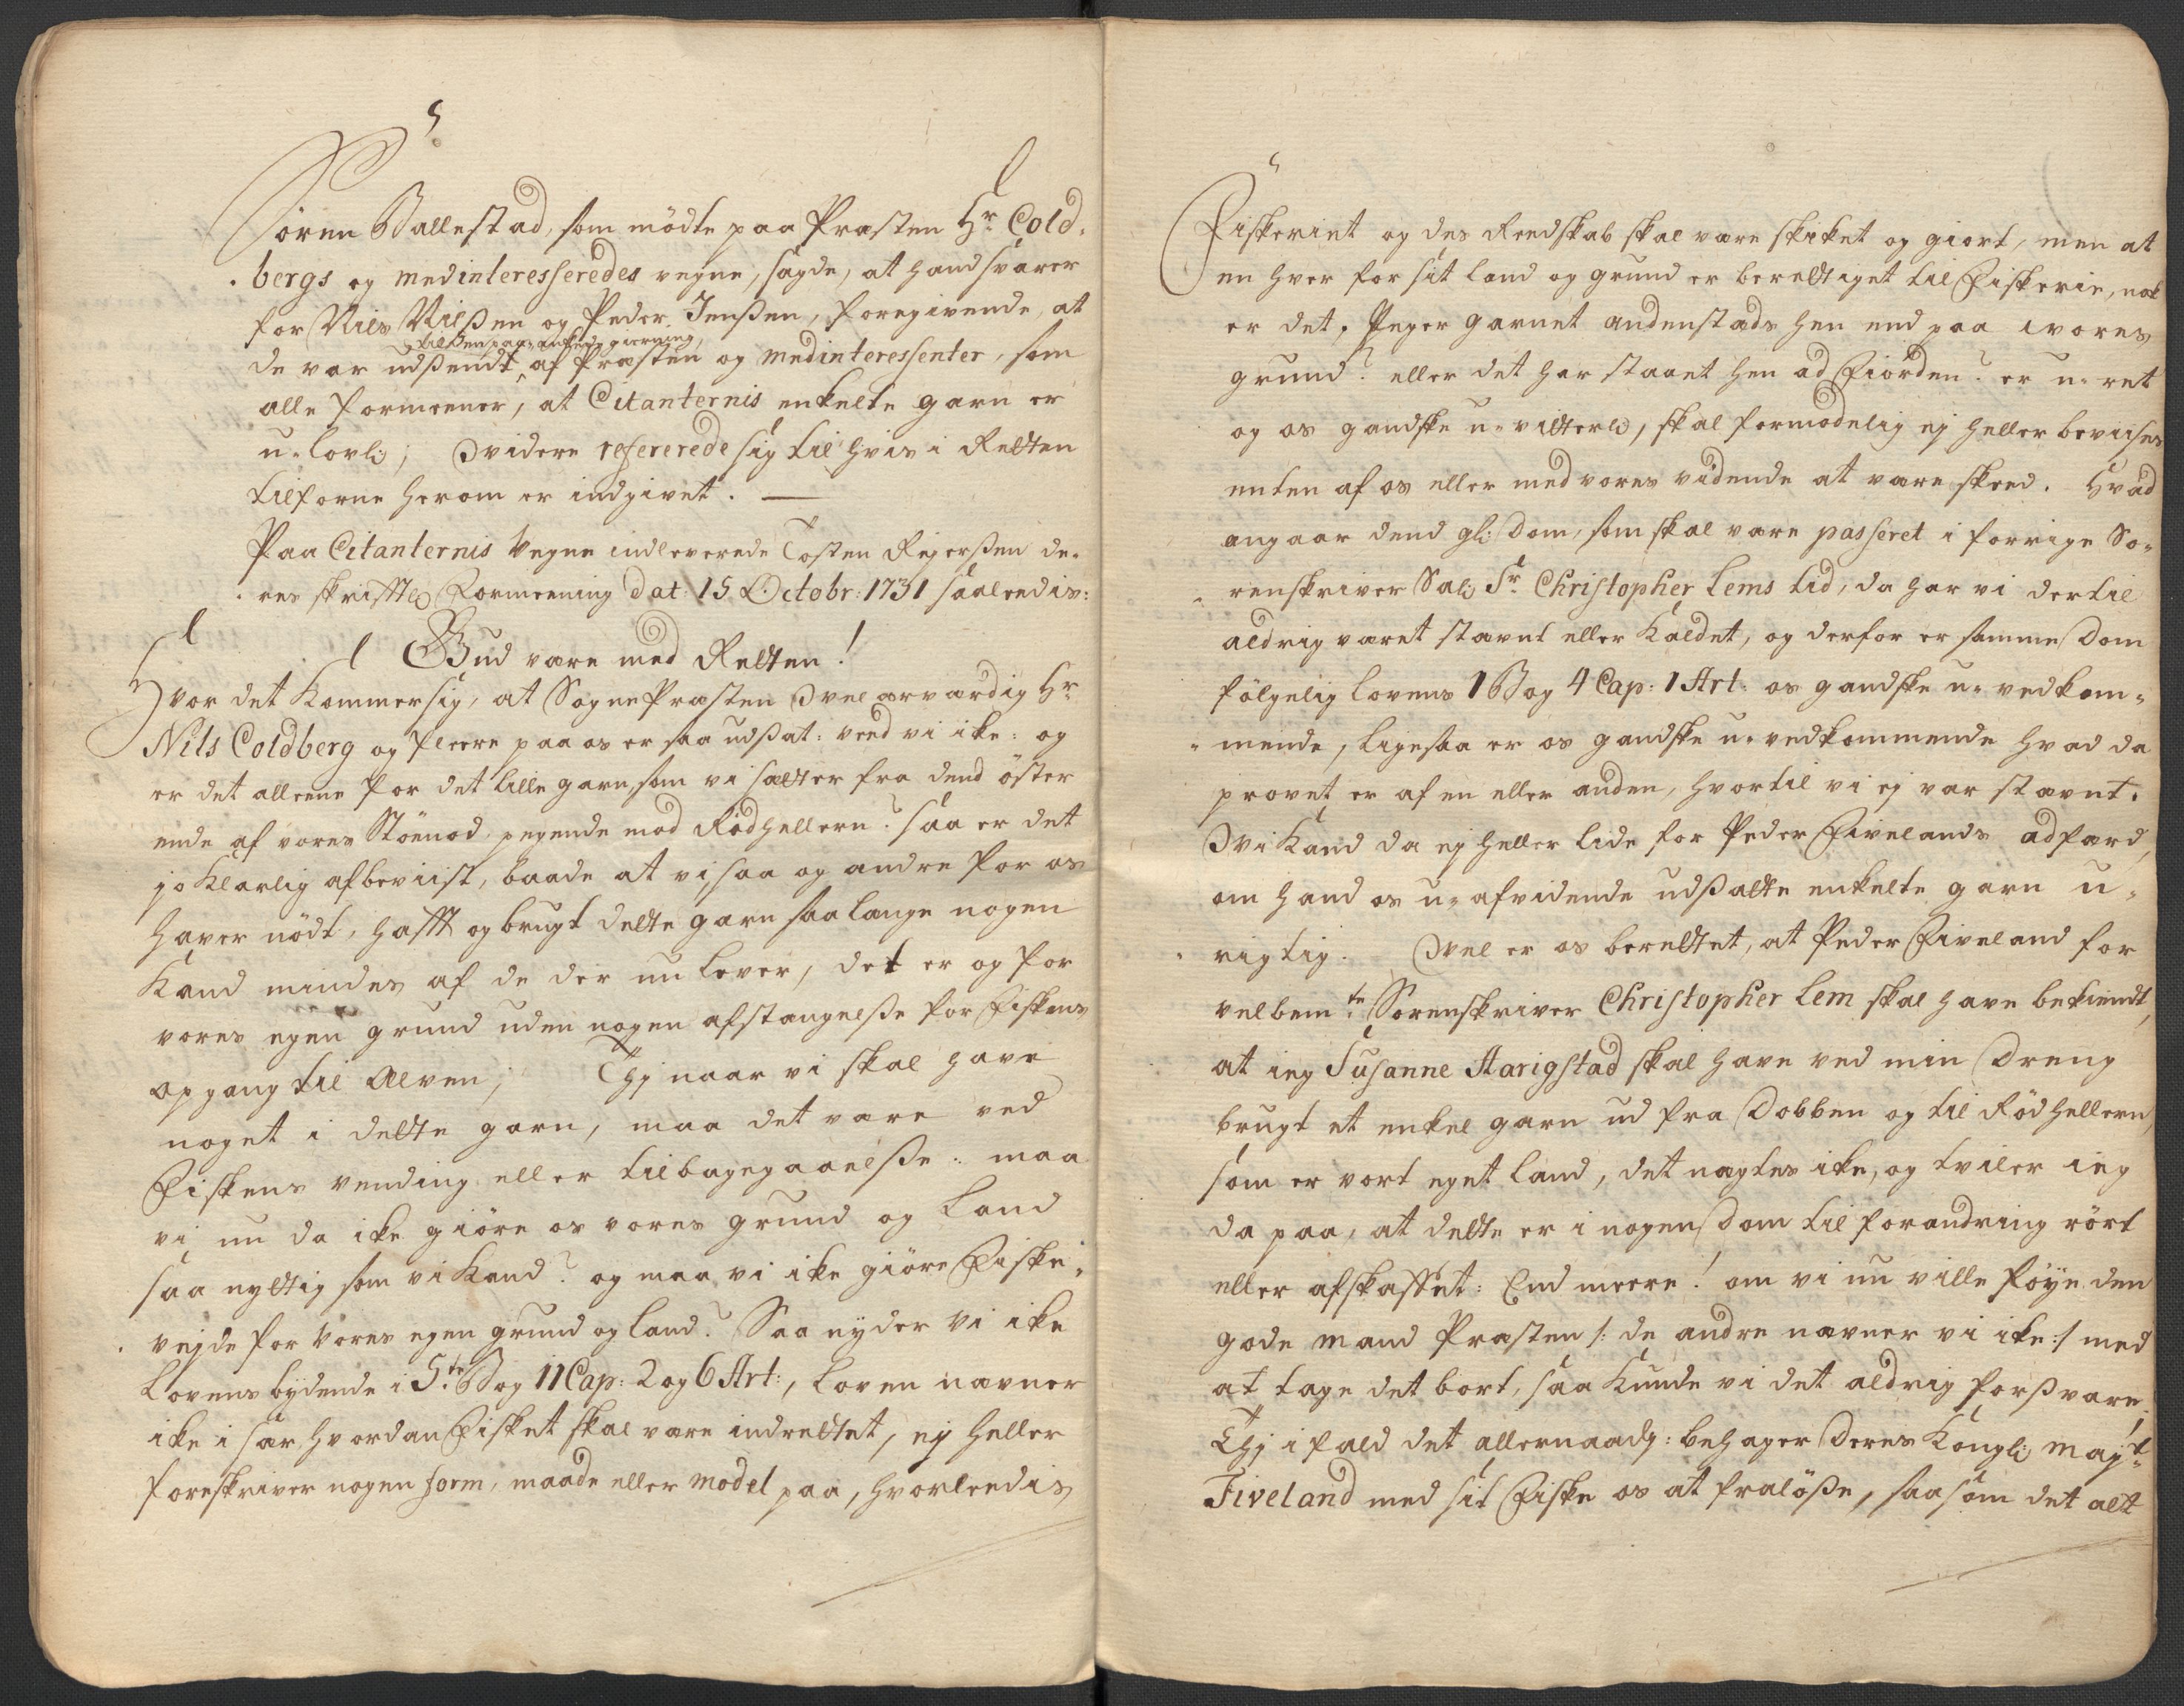 Søren Ballestad, som mödte paa Præsten Hr Cold-
bergs og medinteresseredes vegne, sagde, at hand svarer
for Niels Nilßen og Peder Jenßen, foregivende, at
til den paa ankede gierning,
de var udßendt af Præsten og medinteressenter, som
alle formeener, at Citanternis enkelte garn er
u-lovli; Videre refererede sig til hvis i Retten
tilforne herom er indgivet. —
Paa Citanternis Vegne indleverede Tosten Rejerßen de-
res skrifftl: Formeening dat: 15 Octobr: 1731 saaledis:
Gud være med Retten!
Hvor det Kommer sig, at SognePræsten Velærværdig Hr
Nils Coldberg og fleere paa os er saa udßat: veed vi ike: og
er det alleene for det lille garn, som vi sætter fra dend öster
ende af vores Stönod pegende mod Rödhellern? saa er det
jo Klarlig afbeviist, baade at vi saa og andre for os
haver nödt, hafft og brugt dette garn saa længe nogen
Kand mindes af de der nu lever, det er og for
vores egen grund uden nogen afstængelße for Fiskens
opgang til Elven; Thj naar vi skal have
noget i dette garn, maa det være ved
Fiskens vending eller tilbagegaaelße: maa
vi nu da ike giöre os vores grund og Land
saa nyttig som vi Kand? og maa vi ike giöre Fiske-
vejde for Vores egen grund og land? Saa nyder vi ike
Lovens bydende i 5te Bog 11 Cap: 2 og 6 Art:, Loven nævner
ike i sær hvordan Fisket skal være indrettet, ej heller
foreskriver nogen form, maade eller model paa, hvorleedis
Fiskeriet og des Reedskab skal være skiket og giort, men at
en hver for sit land og grund er berettiget til Fiskerie, nok
er det, Peger garnet andenstads hen end paa vores
grund? eller det har staaet hen ad Fiorden? er u-ret
og os gandske u-vitterl:, skal formodelig ej heller bevises
enten af os eller med vores vidende at være skeed. Hvad
angaar dend gl: Dom, som skal være passeret i forrige So-
renskriver Sal: Sr. Christopher Lems tid, da har vi dertil
aldrig været stævnt eller Kaldet, og derfor er samme Dom
fölgelig lovens 1 Bog 4 Cap: 1 Art: os gandske u-vedkom-
mende, ligesaa er os gandske u-vedkommende hvad da
provet er af en eller anden, hvortil vi ej var stævnt.
Vi Kand da ej heller lide for Peder Fivelands adfærd,
om hand os u-afvidende udßatte enkelte garn u-
rigtig. Vel er os berettet, at Peder Fiveland for
velbemte Sorenskriver Christopher Lem skal have bekiendt,
at ieg Susanne Aarigstad skal have ved min Dreng
brugt et enkel garn ud fra Dobben og til Rödhellern,
som er vort eget land, det nægtes ike, og tviler ieg
da paa, at dette er i nogen Dom til forandring rört
eller afskaffet: End meere! om vi nu ville föye den
gode mand Præsten /: de andre nævner vi ike :/ med
at tage det bort, saa Kunde vi det aldrig forßvare,
Thj ifald det allernaadg: behager Deres Kongl: Mayt:
Fiveland med sit Fiske os at fralöße, saasom det alt